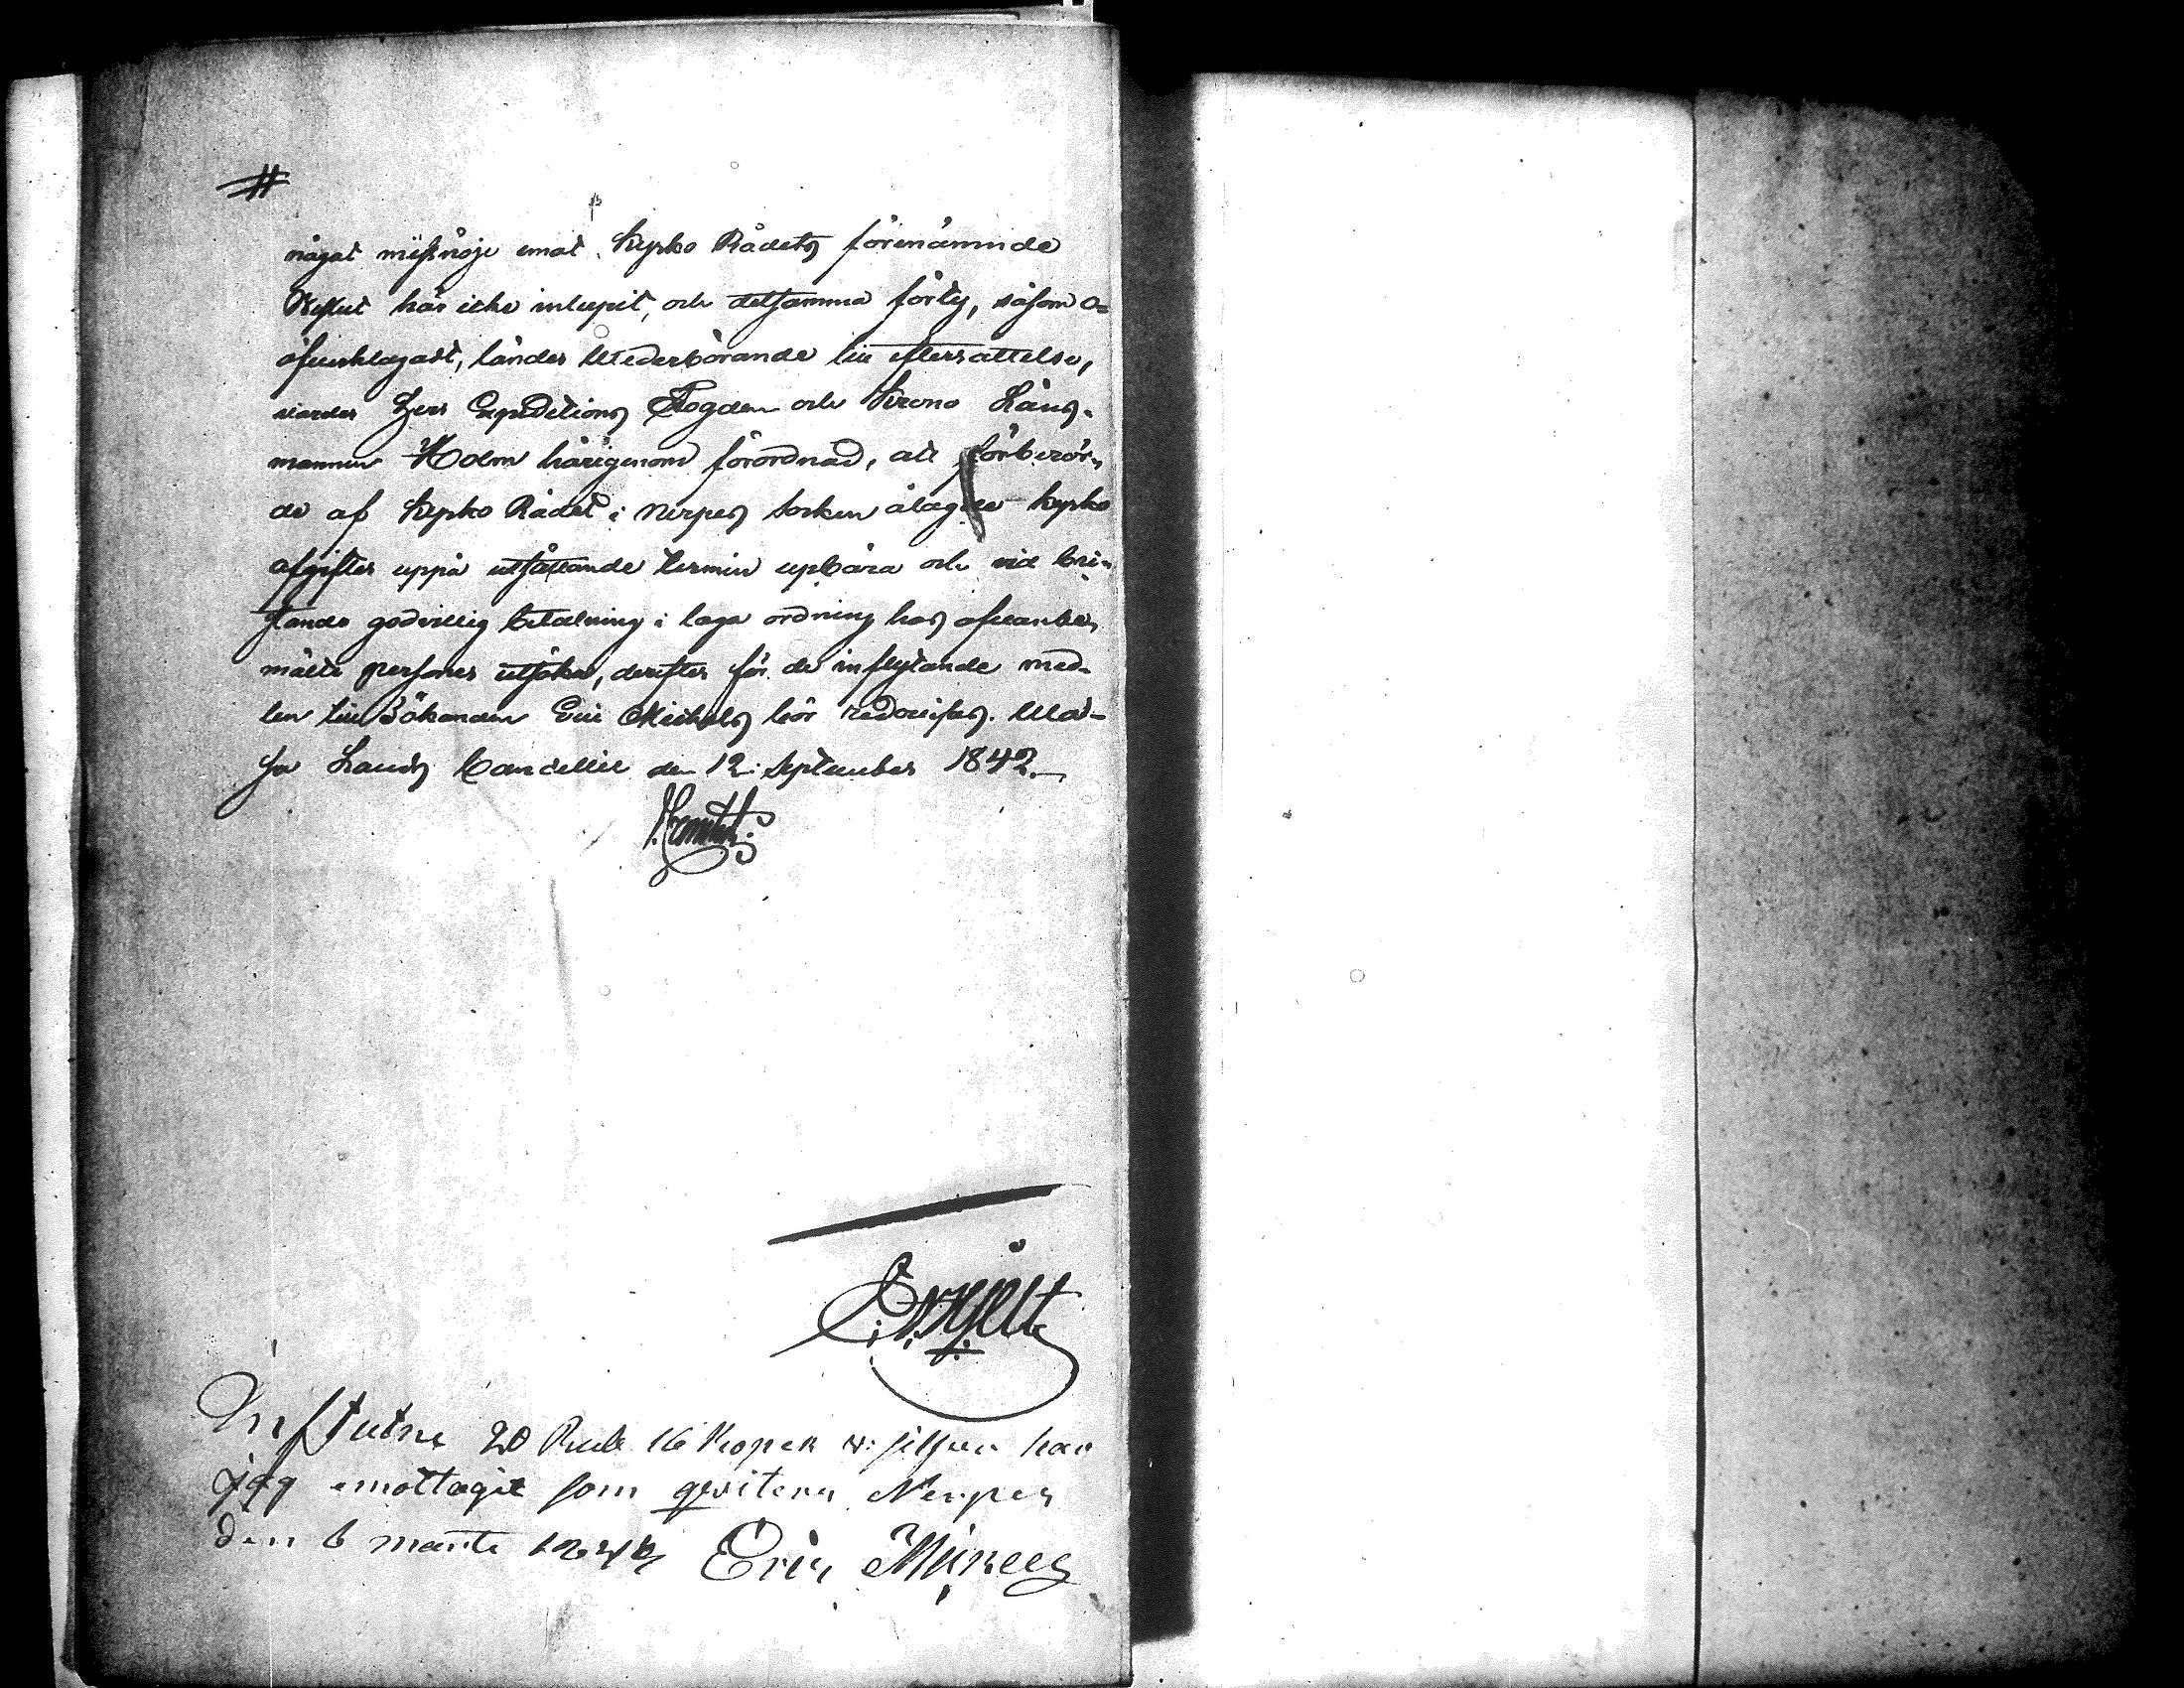 något missnöje emot Kyrko Rådets förenämnde
Beslut här icke inlupit, och detsamma förty, såsom o-
öfverklagadt, länder Wederbörande till efterrättelse,
warder Herr Expeditions Fogden och Krono Läns-
mannen Holm härigenom förordnad, att förberör-
de af Kyrko Rådet i Nerpes Socken ålagde Kyrko
afgifter uppå utsättande termin upbära och vid bri-
stande godvillig betalning i laga ordning hos ofvanbe-
mälte personer utsöka, derefter för de influtande med-
len till Sökanden Eric Michels bör redovisas. Wa-
sa Lands Cancellie den 12 September 1842.
Influtne 20 Rub 16 Kopek i silfver har
jag emottagit som qviteras Nerpes
den 6 Eric